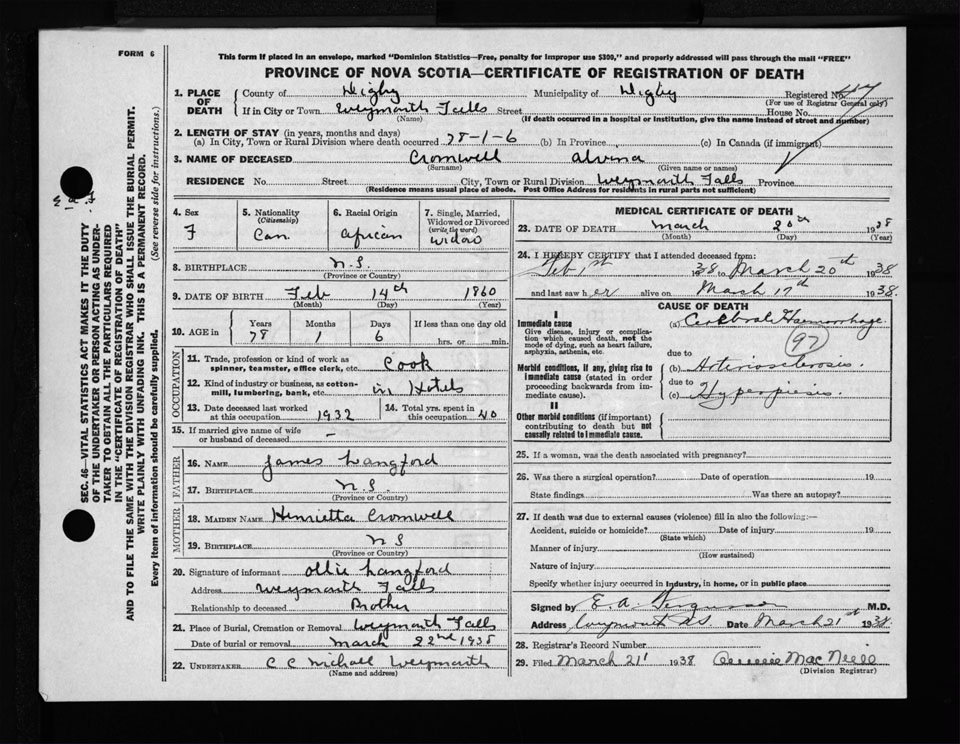 FORM 6
This form if placed in an envelope, marked "Dominion Statistics—Free, penalty for improper use $300," and properly addressed will pass through the mail "FREE"
PROVINCE OF NOVA SCOTIA—CERTIFICATE OF REGISTRATION OF DEATH
1. PLACE OF DEATH
County of Digby Municipality of Digby Registered No.
(For use of Registrar General only)
If in City or Town Weymouth Falls Street House No.
(Name) (If death occurred in a hospital or institution, give the name instead of street and number)
2. LENGTH OF STAY (in years, months and days)
(a) In City, Town or Rural Division where death occurred 78-1-6 (b) In Province (c) In Canada (if immigrant)
3. NAME OF DECEASED Cromwell Alvina
(Surname) (Given name or names)
RESIDENCE No. Street City, Town or Rural Division Weymouth Falls Province
(Residence means usual place of abode. Post Office Address for residents in rural parts not sufficient)
4. Sex F
5. Nationality (Citizenship) Can.
6. Racial Origin African
7. Single, Married, Widowed or Divorced (write the word) Widow
8. BIRTHPLACE N.S.
(Province or Country)
9. DATE OF BIRTH Feb 14th 1860
(Month) (Day) (Year)
10. AGE in Years Months Days If less than one day old
78 1 6 hrs. or min.
OCCUPATION
11. Trade, profession or kind of work as spinner, teamster, office clerk, etc. Cook
12. Kind of industry or business, as cotton-mill, lumbering, bank, etc. in Hotels
13. Date deceased last worked at this occupation 1932
14. Total yrs. spent in this occupation 40
15. If married give name of wife or husband of deceased –
FATHER
16. NAME James Langford
17. BIRTHPLACE N.S.
(Province or Country)
MOTHER
18. MAIDEN NAME Henrietta Cromwell
19. BIRTHPLACE N S
(Province or Country)
20. Signature of informant Ollie Langford
Address Weymouth Falls
Relationship to deceased Brother
21. Place of Burial, Cremation or Removal Weymouth Falls
Date of burial or removal March 22nd 1938
22. UNDERTAKER C C Weymouth
(Name and address)
MEDICAL CERTIFICATE OF DEATH
23. DATE OF DEATH March 20th 1938
(Month) (Day) (Year)
24. I HEREBY CERTIFY that I attended deceased from:
Feb 1st 1938 to March 20th 1938
and last saw her alive on March 17th 1938.
CAUSE OF DEATH
I
Immediate cause
Give disease, injury or complication which caused death, not the mode of dying, such as heart failure, asphyxia, asthenia, etc.
(a) Cerebral Haemorrhage.
97
due to
Morbid conditions, if any, giving rise to immediate cause (stated in order proceeding backwards from immediate cause).
(b) Arteriosclerosis.
due to
(c) Hyperpiesis.
II
Other morbid conditions (if important) contributing to death but not causally related to immediate cause.
25. If a woman, was the death associated with pregnancy?
26. Was there a surgical operation? Date of operation 19
State findings Was there an autopsy?
27. If death was due to external causes (violence) fill in also the following:—
Accident, suicide or homicide? Date of injury 19
(State which)
Manner of injury
(How sustained)
Nature of injury
Specify whether injury occurred in industry, in home, or in public place
Signed by E. A. Ferguson M.D.
Address Weymouth N.S. Date March 21st 1938
28. Registrar's Record Number
29. Filed March 21 1938 MacNeill
(Division Registrar)
SEC. 46—VITAL STATISTICS ACT MAKES IT THE DUTY
OF THE UNDERTAKER OR PERSON ACTING AS UNDERTAKER TO OBTAIN ALL THE PARTICULARS REQUIRED
IN THE "CERTIFICATE OF REGISTRATION OF DEATH"
AND TO FILE THE SAME WITH THE DIVISION REGISTRAR WHO SHALL ISSUE THE BURIAL PERMIT.
WRITE PLAINLY WITH UNFADING INK. THIS IS A PERMANENT RECORD.
Every item of information should be carefully supplied. (See reverse side for instructions.)